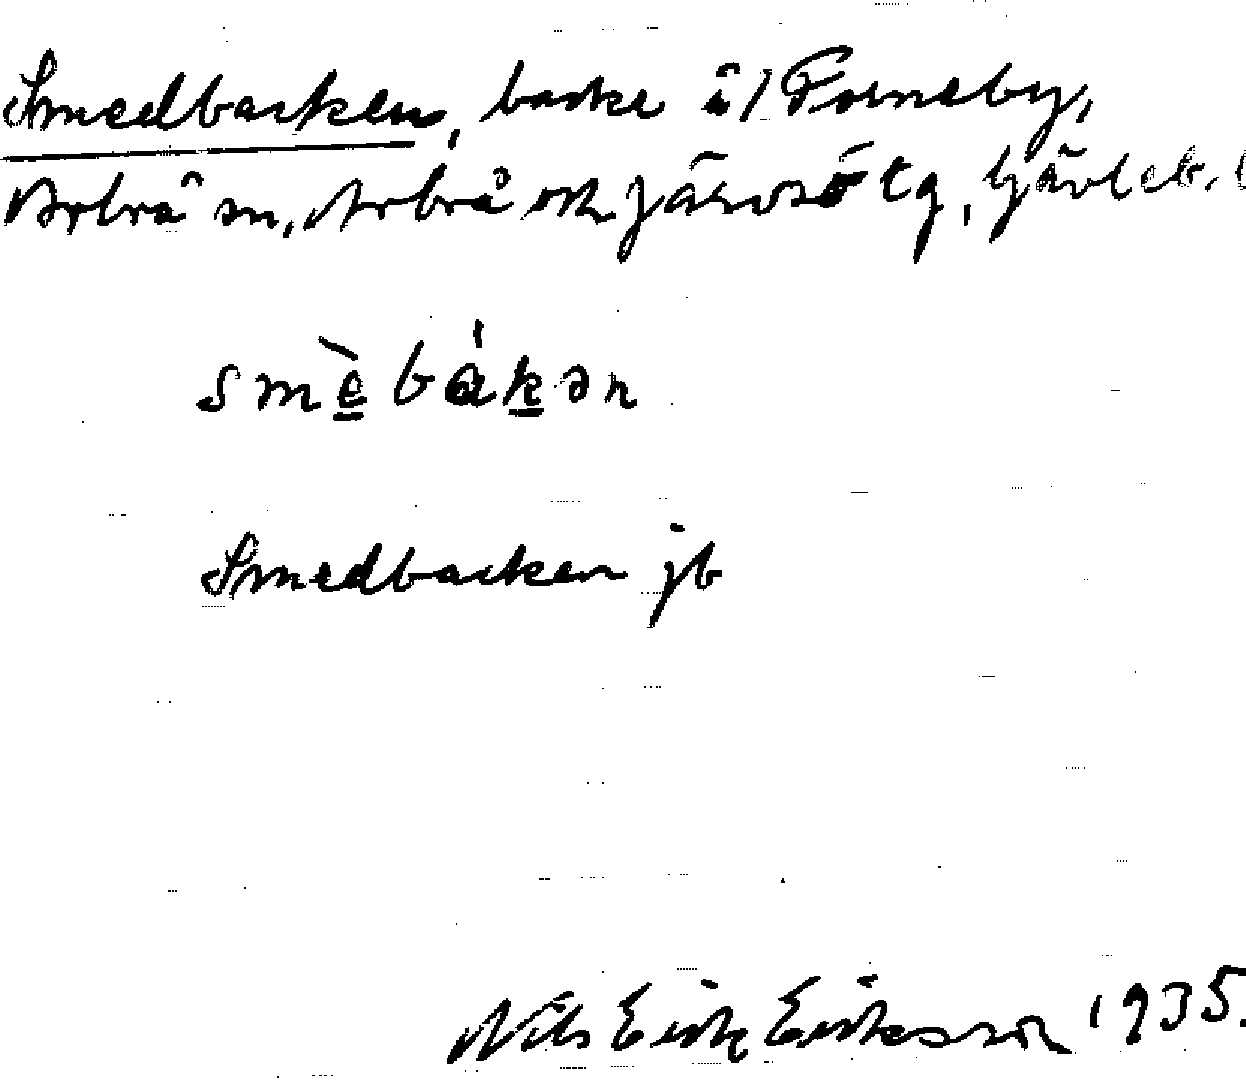 Smedbacken, backe å / Forneby,
Arbrå sn, Arbrå och Järvsö tg, Gävleb. l
smèbákən
Smedbacken jb
Nils Erik Eriksson 1935.